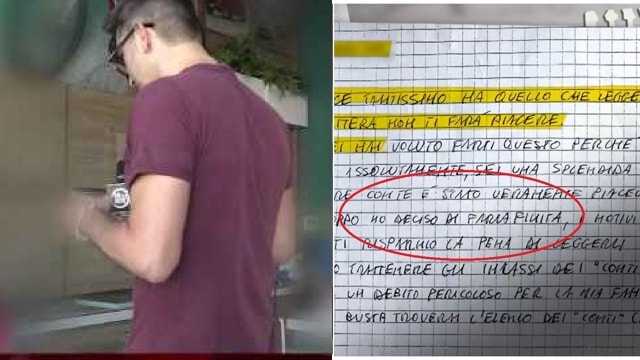 CE TANTISSIMO MA QUELLO CHE LEGGE
TTERA NON TI FARÀ PIACERE.
EI MAI VOLUTO FARTI QUESTO PERCHÉ
ASSOLUTAMENTE, SEI UNA SPLENDIDA
RE CON TE È STATO VERAMENTE PIACE
HO DECISO DI FARLA FINITA, MOTIVI
TI RISPARMIO LA PENA DI LEGGERLI
O TRATTENERE GLI INCASSI DEI "CONTI
UN DEBITO PERICOLOSO PER LA MIA FAM
BUSTA TROVERAI L'ELENCO DEI "CONTI"